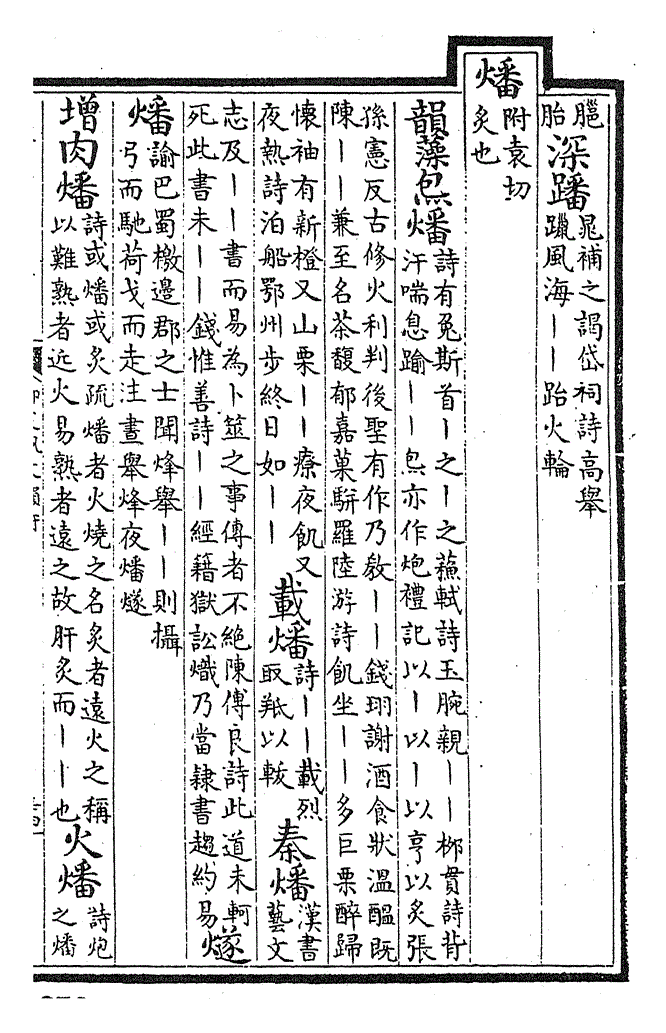 臛胎深蹯晁補之謁岱祠詩高舉躐風海〡〡跆火輪
燔附袁切炙也
韻藻炰燔詩有兔斯首〡之〡之蘇軾詩玉腕親〡〡栁貫詩背汗喘息踰〡〡炰亦作炮禮記以〡以〡以亨以炙張
孫憲反古修火利判後聖有作乃啟〡〡錢珝謝酒食狀溫醞既陳〡〡兼至名茶馥郁嘉菓駢羅陸游詩飢坐〡〡多巨栗醉歸
懷袖有新橙又山栗〡〡療夜飢又夜熱詩泊船鄂州步終日如〡〡載燔詩〡〡載烈取羝以軷秦燔漢書藝文
志及〡〡書而易為卜筮之事傳者不絶陳傅良詩此道未軻死此書未〡〡錢惟善詩〡〡經籍獄訟熾乃當隸書趨約易燧
燔諭巴蜀檄邊郡之士聞烽舉〡〡則攝弓而馳荷戈而走注晝舉烽夜燔燧
增肉燔詩或燔或炙疏燔者火燒之名炙者遠火之稱以難熟者近火易熟者遠之故肝炙而〡〡也火燔詩炮之燔